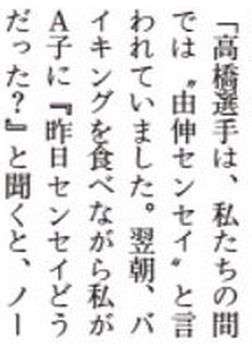 「高橋選手は、私たちの間
では〝由伸センセイ〟と言
われていました。翌朝、バ
イキングを食べながら私が
A子に『昨日センセイどう
だった?』と聞くと、ノー